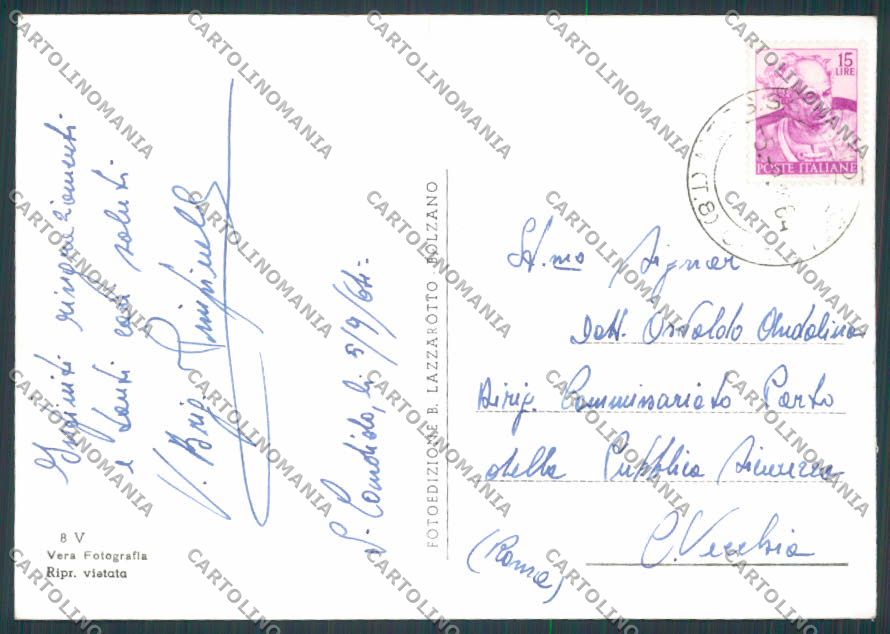 Infiniti ringraziamenti
e tanti cari saluti
V. Brig.
S. Candido, li 5/9/64.
8 V
Vera Fotografia
Ripr. vietata
FOTOEDIZIONE B. LAZZAROTTO BOLZANO
15
LIRE
POSTE ITALIANE
Ill.mo Signor
Dott. Osvaldo Andolina
Dirig. Commissariato Porto
della Pubblica Sicurezza
C. Vecchia
(Roma)
CARTOLINOMANIA